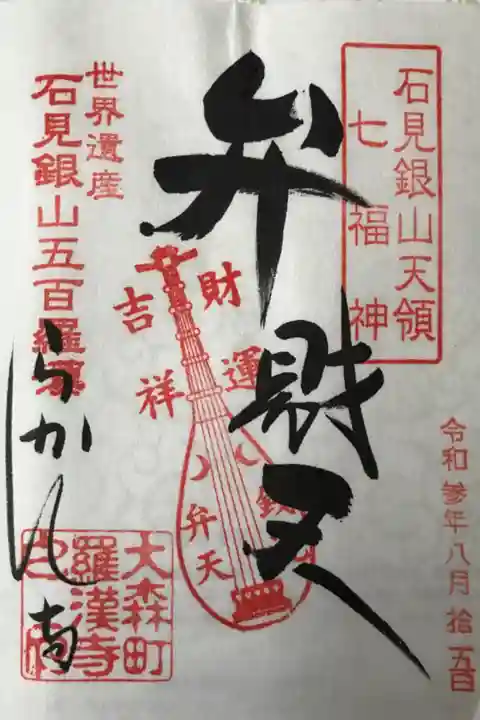 石見銀山天領
七福神
令和参年八月拾五日
弁財天
財運
吉祥
弁天
銀
世界遺産
石見銀山五百羅漢
らかん寺
大森町
羅漢寺